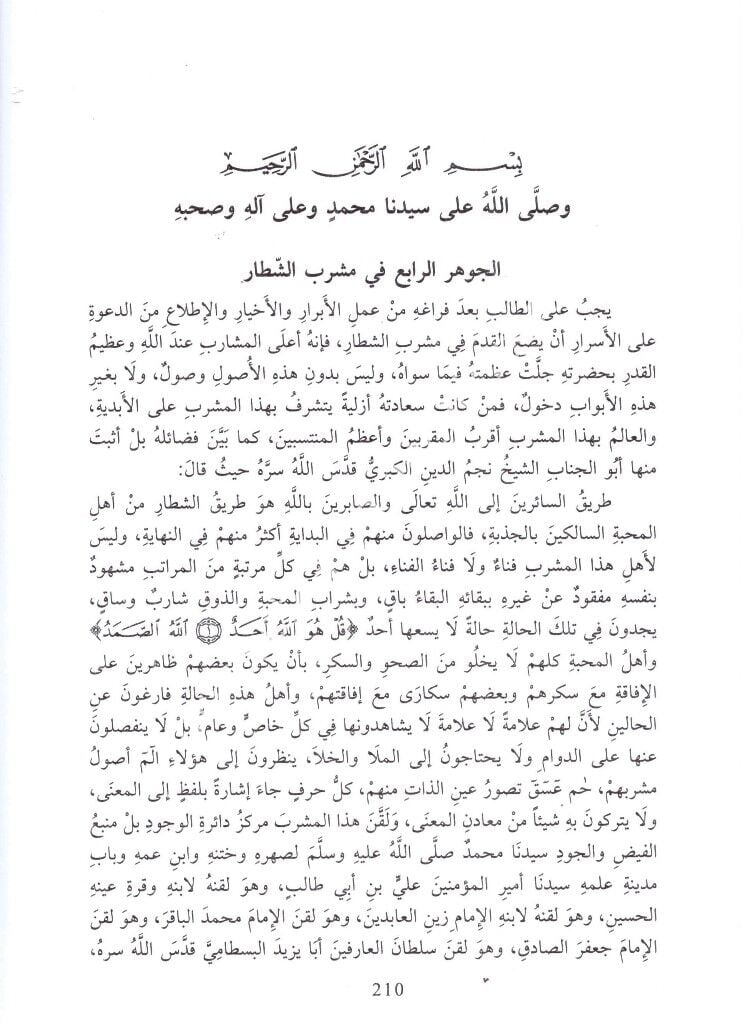 بِسْمِ اللَّهِ الرَّحْمَٰنِ الرَّحِيمِ
وصلَّى اللَّهُ على سيدنا محمدٍ وعلى آلهِ وصحبهِ
الجوهر الرابع في مشرب الشّطار
يجبُ على الطالبِ بعدَ فراغهِ منْ عملِ الأبرارِ والأخيارِ والإطلاعِ منَ الدعوةِ
على الأسرارِ أنْ يضعَ القدمَ فِي مشربِ الشطارِ، فإنهُ أعلَى المشاربِ عندَ اللَّهِ وعظيمُ
القدرِ بحضرتهِ جلَّتْ عظمتهُ فيمَا سواهُ، وليسَ بدونِ هذهِ الأُصولِ وصولٌ، ولَا بغيرِ
هذهِ الأبوابِ دخولٌ، فمنْ كانتْ سعادتهُ أزليةً يتشرفُ بهذا المشربِ على الأبديةِ،
والعالمُ بهذا المشربِ أقربُ المقربينَ وأعظمُ المنتسبينَ، كما بَيَّنَ فضائلهُ بلْ أثبتَ
منها أبُو الجنابِ الشيخُ نجمُ الدينِ الكبريُّ قدَّسَ اللَّهُ سرَّهُ حيثُ قالَ:
طريقُ السائرينَ إلى اللَّهِ تعالَى والصابرينَ باللَّهِ هوَ طريقُ الشطارِ منْ أهلِ
المحبةِ السالكينَ بالجذبةِ، فالواصلونَ منهمْ في البدايةِ أكثرُ منهمْ فِي النهايةِ، وليسَ
لأهلِ هذا المشربِ فناءٌ ولَا فناءُ الفناءِ، بلْ همْ فِي كلِّ مرتبةٍ منَ المراتبِ مشهودٌ
بنفسهِ مفقودٌ عنْ غيرهِ ببقائهِ البقاءُ باقٍ، وبشرابِ المحبةِ والذوقِ شاربٌ وساقٍ،
يجدونَ فِي تلكَ الحالةِ حالةً لَا يسعها أحدٌ ﴿قُلْ هُوَ اللَّهُ أَحَدٌ ۝١ اللَّهُ الصَّمَدُ﴾
وأهلُ المحبةِ كلهمْ لَا يخلُو منَ الصحوِ والسكرِ، بأنْ يكونَ بعضهمْ ظاهرينَ على
الإفاقةِ معَ سكرهمْ وبعضهمْ سكارَى معَ إفاقتهمْ، وأهلُ هذهِ الحالةِ فارغونَ عنِ
الحالينِ لأنَّ لهمْ علامةً لَا علامةَ لَا يشاهدونها فِي كلِّ خاصٍّ وعامٍّ، بلْ لَا ينفصلونَ
عنها على الدوامِ ولَا يحتاجونَ إلى الملَا والخلَا، ينظرونَ إلى هؤلاءِ الٓمٓ أصولُ
مشربهمْ، حٰم عٓسٓقٓ تصورُ عينِ الذاتِ منهمْ، كلُّ حرفٍ جاءَ إشارةً بلفظٍ إلى المعنَى،
ولَا يتركونَ بهِ شيئاً منْ معادنِ المعنَى، وَلَقَّنَ هذا المشربَ مركزُ دائرةِ الوجودِ بلْ منبعُ
الفيضِ والجودِ سيدنَا محمدٌ صلَّى اللَّهُ عليهِ وسلَّمَ لصهرهِ وختنهِ وابنِ عمهِ وبابِ
مدينةِ علمهِ سيدنَا أميرِ المؤمنينَ عليِّ بنِ أبي طالبٍ، وهوَ لقنهُ لابنهِ وقرةِ عينهِ
الحسينِ، وهوَ لقنهُ لابنهِ الإمامِ زينِ العابدينَ، وهوَ لقنَ الإمامَ محمدَ الباقرَ، وهوَ لقنَ
الإمامَ جعفرَ الصادقَ، وهوَ لقنَ سلطانَ العارفينَ أبَا يزيدَ البسطاميَّ قدَّسَ اللَّهُ سرهُ،
210